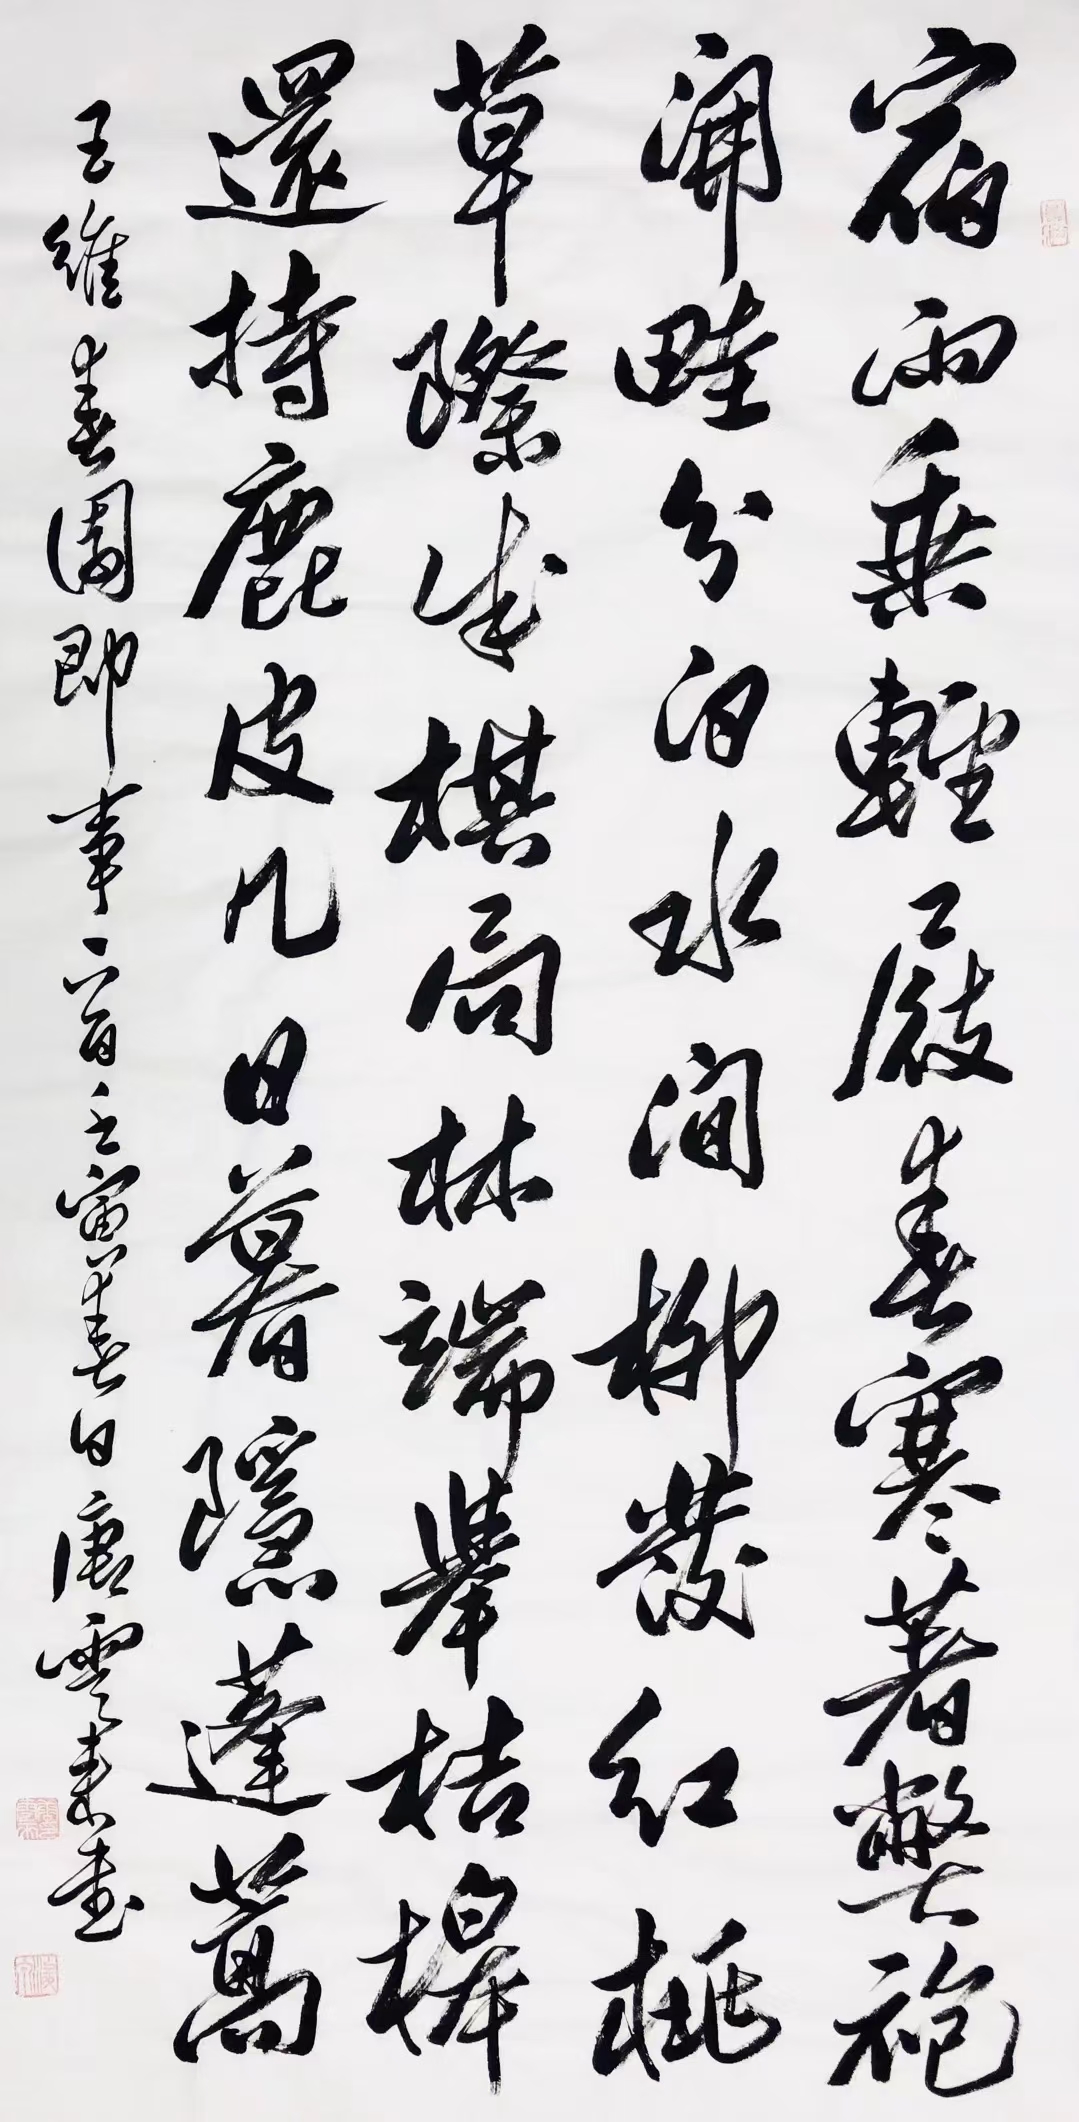 宿雨乘輕屐春寒著弊袍
開畦分白水間柳發紅桃
草際成棋局林端舉桔槔
還持鹿皮几日暮隱蓬蒿
王維春園即事一首壬寅春日唐雲來書